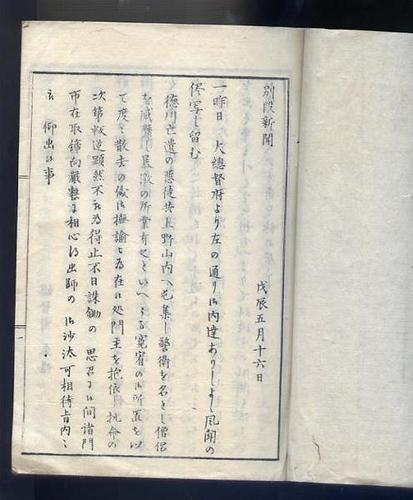 別段新聞
戊辰五月十六日
一昨日 大總督府より左の通り御内達ありしよし風聞の
侭写し留む
徳川亡遺の悪徒共上野山内へ屯集し警衛を名とし僧侶
を威 暴激の所業有之といへとも寛宥の御所置を以
て度々散去の儀御撫諭被為在候処門主を抱依 抗命の
次第叛逆顕然不被為得止不日誅鋤の 思召に候間諸門
市在取締向厳整に相心得出師の 御沙汰可相待旨内々
被 仰出候事